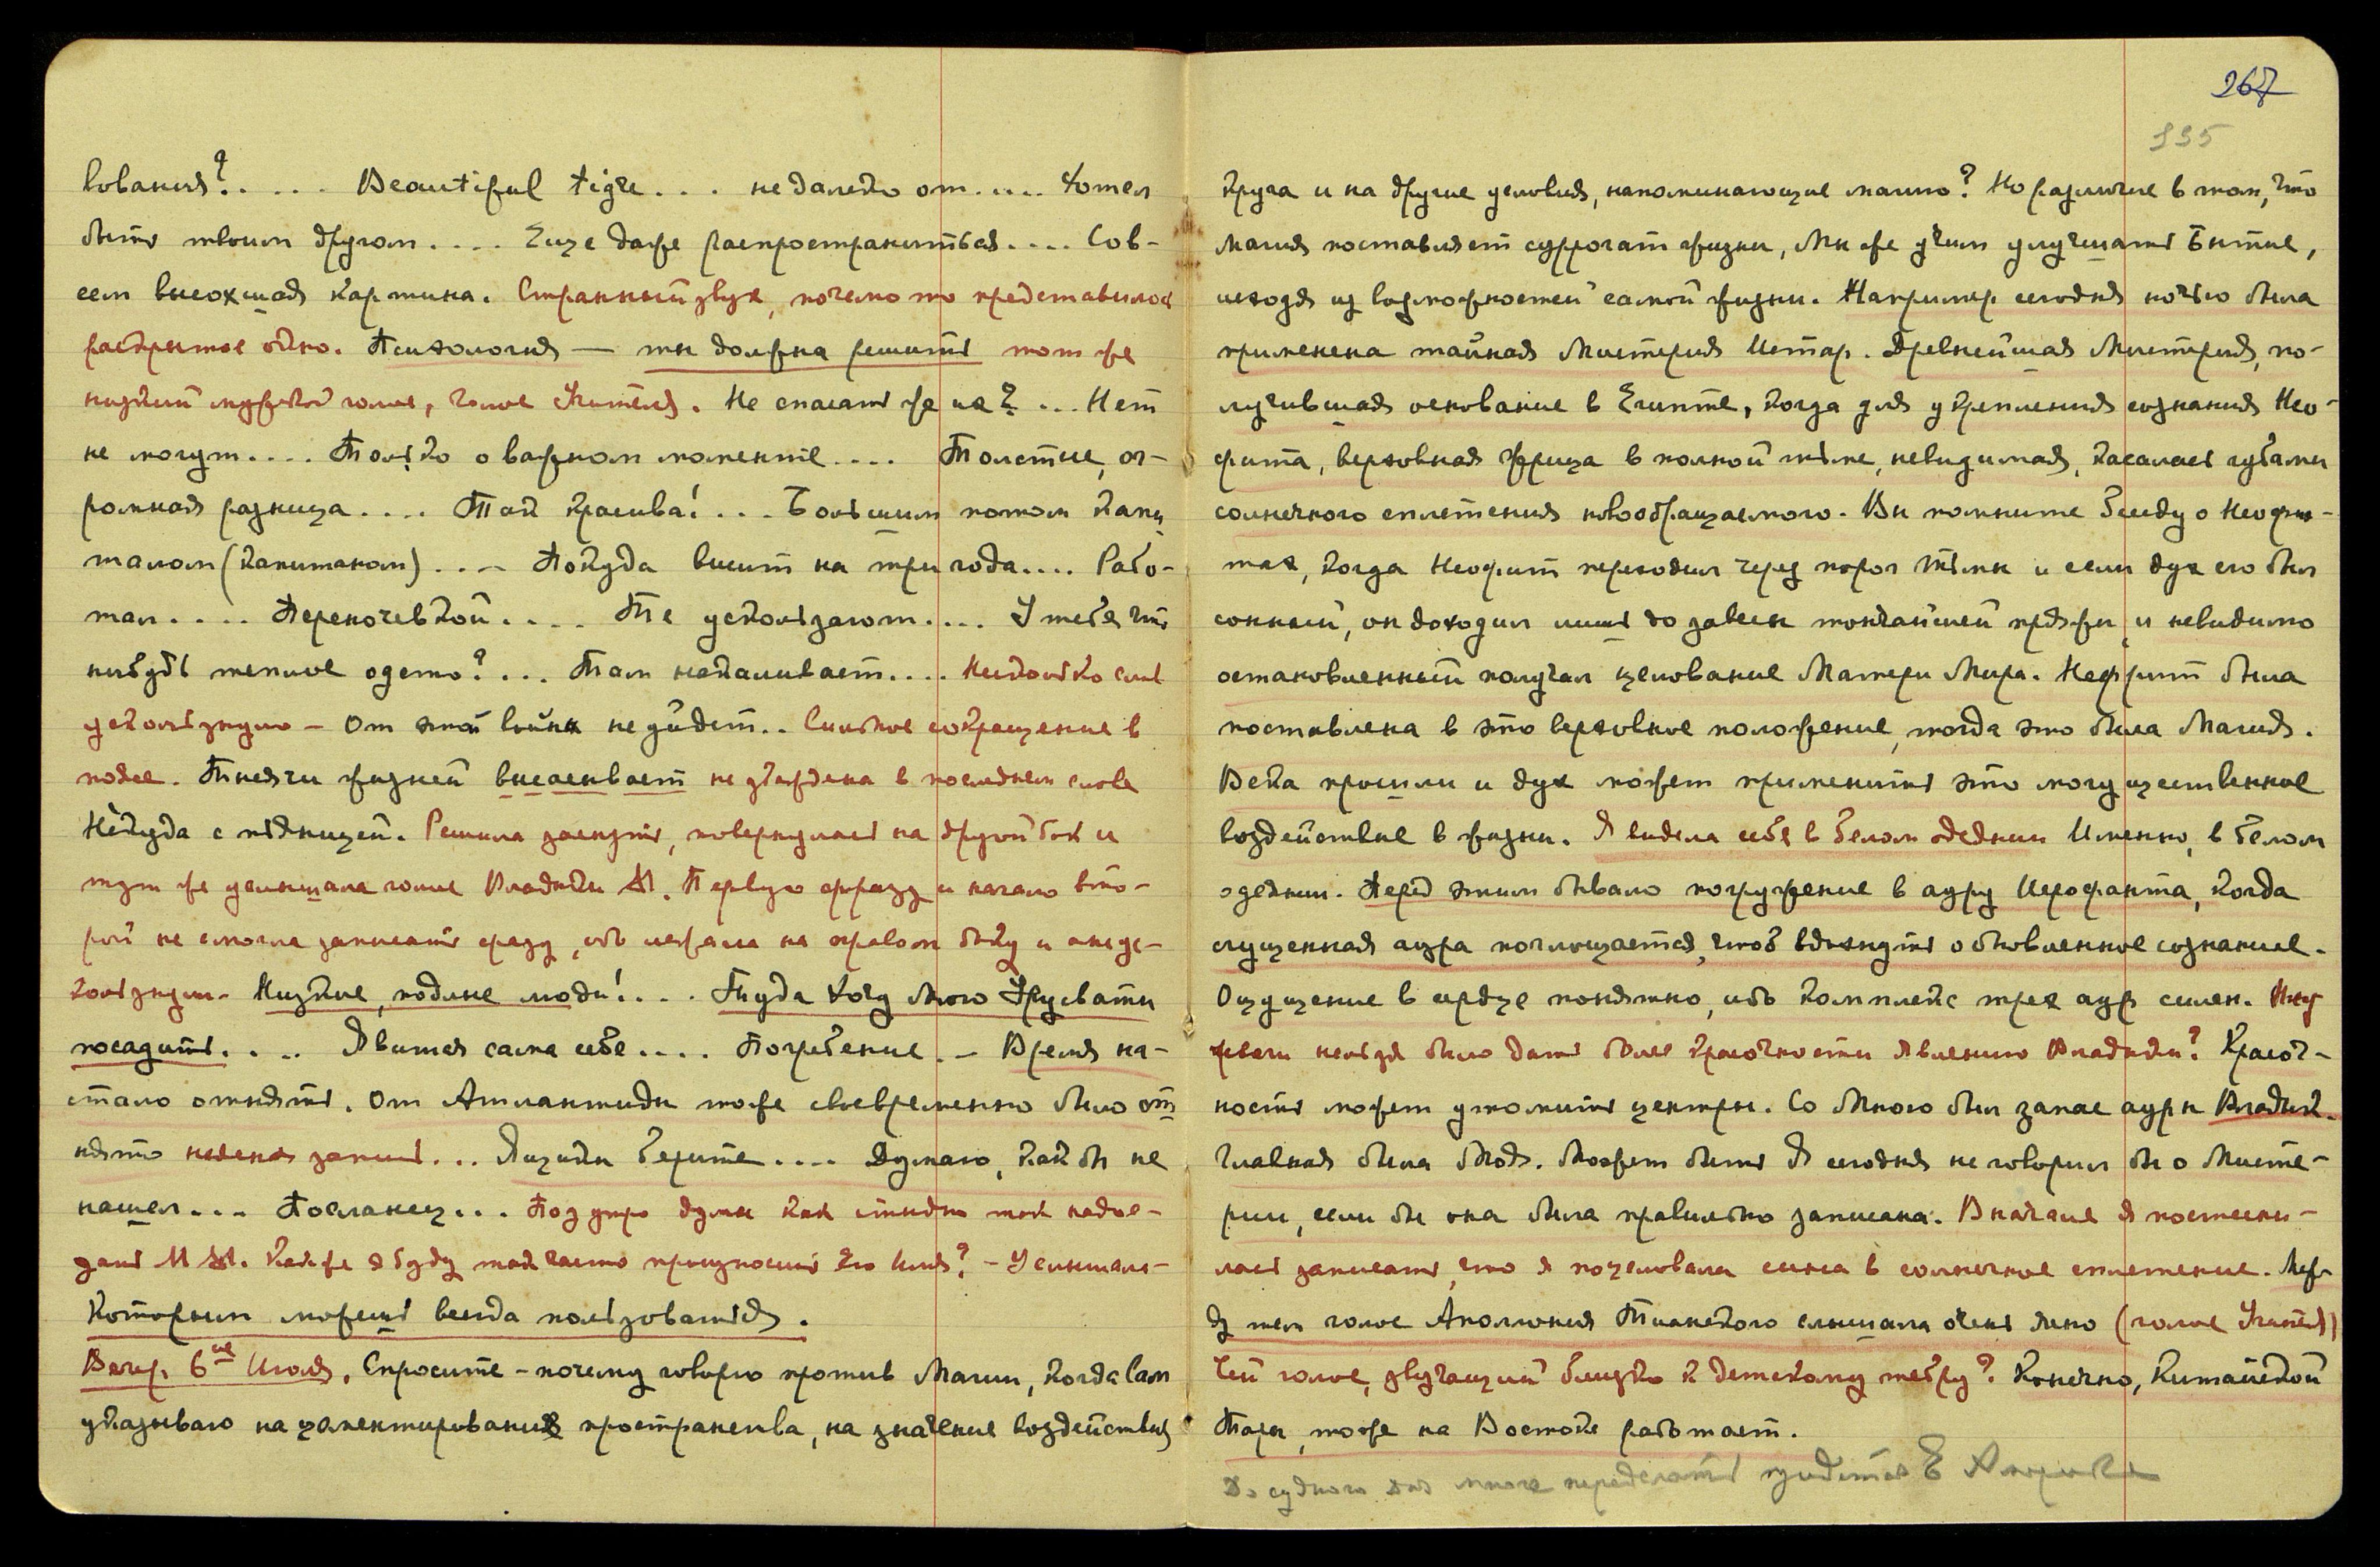 вования?..... Beautiful tigre... недалеко от.... Хотел
быть твоим другом.... Еще даже распространиться.... Сов-
сем высохшая картина. Странный звук, почему то представилось
раскрытое окно. Психология — ты должна решить тот же
низкий мужской голос, голос Учителя. Не спасать же их?... Нет
не могут.... Только о важном моменте.... Толстые, ог-
ромная разница.... Так красива!... Большим потом капи
талом (капитаном).... Покуда висит на три года.... Рабо-
тал.... Перекочевкой.... Те ускользают.... У тебя что
нибудь теплое одето?... Там накаливает.... Несколько слов
ускользнуло – от этой войны не уйдет.. Сильное сокращение в
Тысячи жизней высасывает не утверждена в последнем слове
Некуда с пьяницей. Решила заснуть, повернулась на другой бок и
тут же услышала голос Владыки М. Первую фразу и начало вто-
рой не смогла записать сразу, ибо лежала на правом боку и они ус-
кользнули. Низкие, подлые люди!.... Туда хочу Мою Урусвати
посадить.... Явится сама себе.... Погребение.. – Время на-
стало отнять. От Атлантиды тоже своевременно было от
нято неясная запись... Язички берите.... Думаю, как бы не
нашел... Посланец... Под утро думы как стыдно так надое-
дать М М. Как же я буду так часто произносить Его Имя? – Услышала –
Которым можешь всегда пользоваться.
Вечер. 6ое Июля. Спросите – почему говорю против Магии, когда Сам
указываю на цементирование пространства, на значение воздействия
267
круга и на другие условия, напоминающие магию? Но различие в том, что
магия поставляет суррогат жизни, Мы же учим улучшать Бытие,
исходя из возможностей самой жизни. Например сегодня ночью была
применена тайная Мистерия Истар. Древнейшая Мистерия, по-
лучившая основание в Египте, когда для укрепления сознания Нео-
фита, верховная жрица в полной тьме, невидимая, касалась губами
солнечного сплетения новообращаемого. Вы помните беседу о Неофи-
тах, когда Неофит переходил через порог тьмы и если дух его был
сонный, он доходил лишь до завесы тончайшей пряжи и невидимо
остановленный получал целование Матери Мира. Нефрит была
поставлена в это верховное положение, тогда это была Магия.
Века прошли и дух может применить это могущественное
воздействие в жизни. Я видела себя в белом одеянии Именно, в белом
одеянии. Перед этим бывало погружение в ауру Иерофанта, когда
сгущенная аура поглощается, чтоб вдохнуть обновленное сознание.
Ощущение в сердце понятно, ибо комплекс трех аур силен.
нельзя было дать более красочности явлению Владыки? Красоч-
ность может утомить центры. Со Мною был запас ауры Владык.
Главная была Моя. Может быть Я сегодня не говорил бы о Мисте-
рии, если бы она была правильно записана. В начале я постесни-
лась записать, что я поцеловала сына в солнечное сплетение. Меж
ду тем голос Аполлония Тианского слышала очень ясно (голос Учителя)
Чей голос, звучащий близко к детскому тембру? Конечно, Китайской
Тары, тоже на Востоке работает.
До судного дня много переделать придется